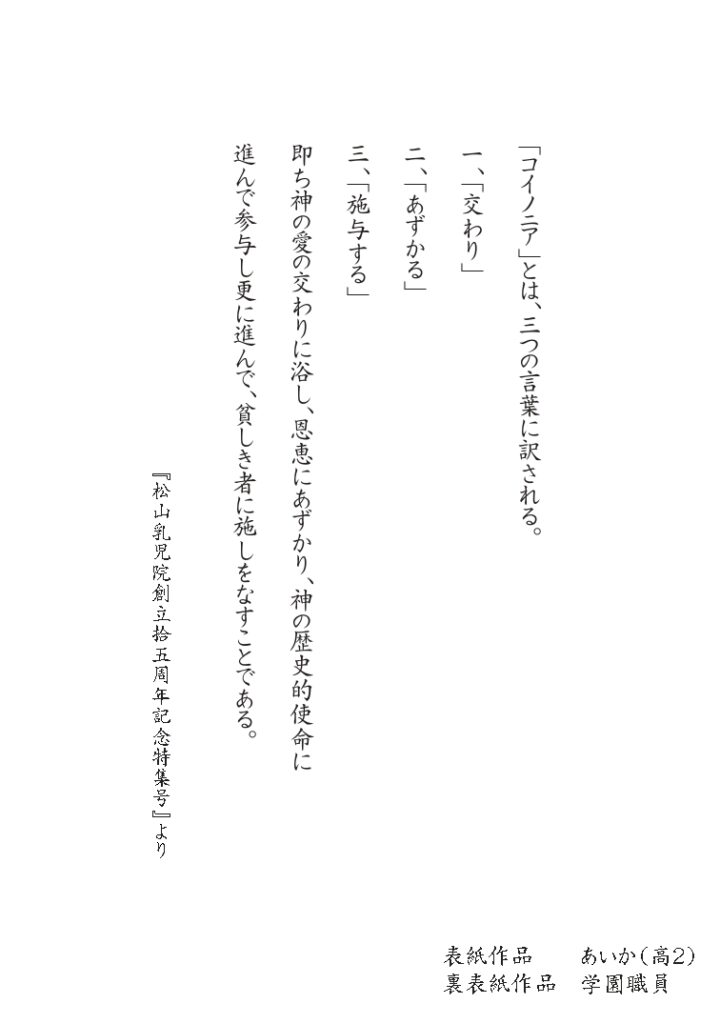 「コイノニア」とは、三つの言葉に訳される。
一、「交わり」
二、「あずかる」
三、「施与する」
即ち神の愛の交わりに浴し、恩恵にあずかり、神の歴史的使命に
進んで参与し更に進んで、貧しき者に施しをなすことである。
『松山乳児院創立拾五周年記念特集号』より
表紙作品　　あいか（高２）
裏表紙作品　学園職員